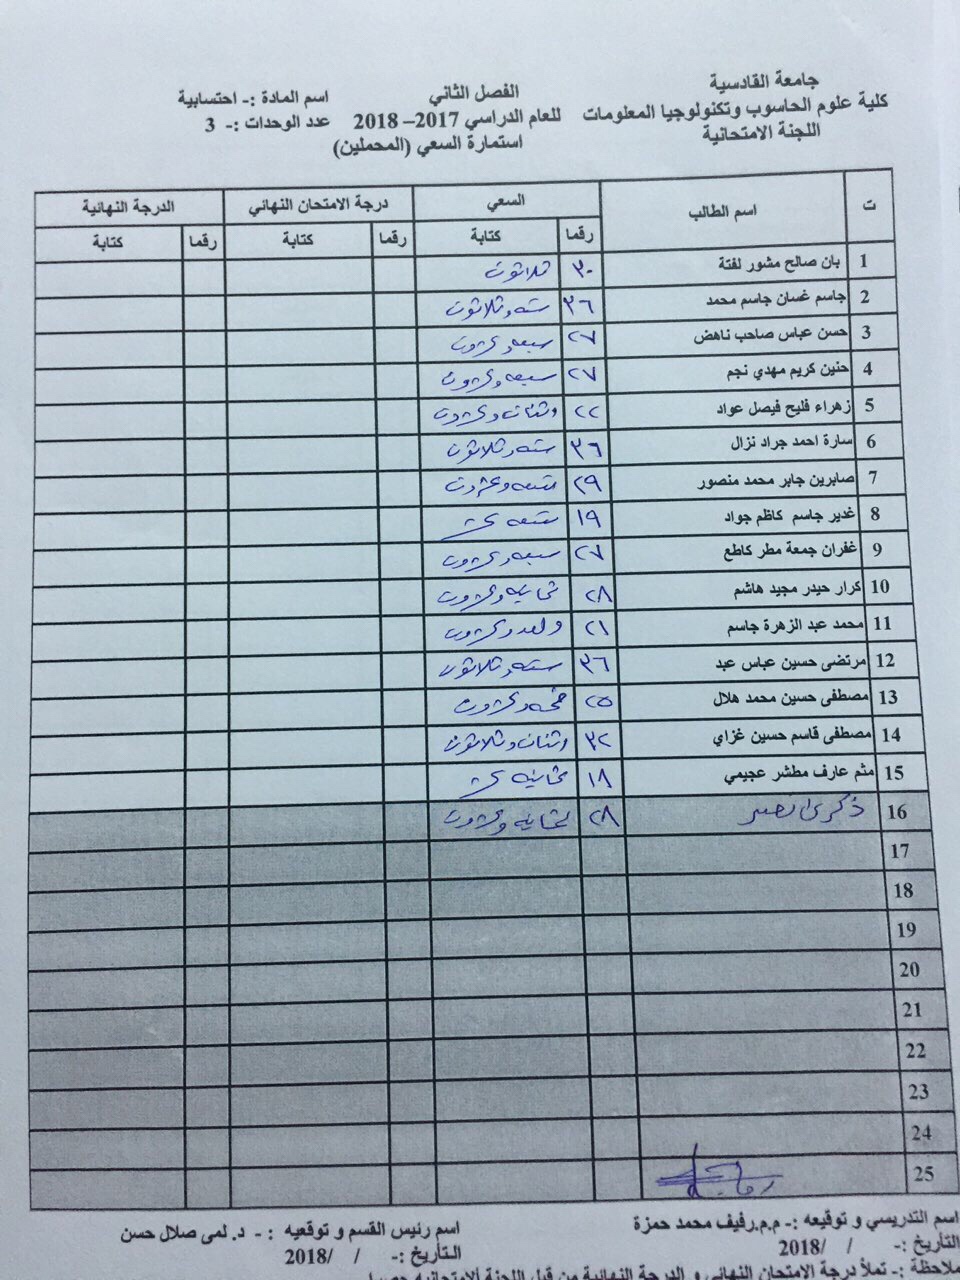 جامعة القادسية
كلية علوم الحاسوب وتكنولوجيا المعلومات
اللجنة الامتحانية
الفصل الثاني
للعام الدراسي 2017– 2018
استمارة السعي (المحملين)
اسم المادة :- احتسابية
عدد الوحدات :- 3
ت اسم الطالب السعي درجة الامتحان النهائي الدرجة النهائية
رقما كتابة رقما كتابة رقما كتابة
1 بان صالح مشور لفتة ٣٠ ثلاثون
2 جاسم غسان جاسم محمد ٣٦ سته وثلاثون
3 حسن عباس صاحب ناهض ٢٧ سبعه وعشرون
4 حنين كريم مهدي نجم ٢٧ سبعه وعشرون
5 زهراء فليح فيصل عواد ٢٢ اثنان وعشرون
6 سارة احمد جراد نزال ٣٦ سته وثلاثون
7 صابرين جابر محمد منصور ٢٩ تسعه وعشرون
8 غدير جاسم كاظم جواد ١٩ تسعه عشر
9 غفران جمعة مطر كاطع ٢٧ سبعه وعشرون
10 كرار حيدر مجيد هاشم ٢٨ ثمانيه وعشرون
11 محمد عبد الزهرة جاسم ٢١ واحد وعشرون
12 مرتضى حسين عباس عبد ٣٦ سته وثلاثون
13 مصطفى حسين محمد هلال ٢٥ خمسه وعشرون
14 مصطفى قاسم حسين غزاي ٣٢ اثنان وثلاثون
15 مثم عارف مطشر عجيمي ١٨ ثمانيه عشر
16 ذكرى نصير ٢٨ ثمانيه وعشرون
17
18
19
20
21
22
23
24
25
اسم التدريسي و توقيعه :- م.م.رفيف محمد حمزة
التأريخ :- / /2018
اسم رئيس القسم و توقعيه :- د. لمى صلال حسن
التأريخ :- / /2018
ملاحظة :- تملأ درجة الامتحان النهائي و الدرجة النهائية من قبل اللجنة الامتحانيه حصرا